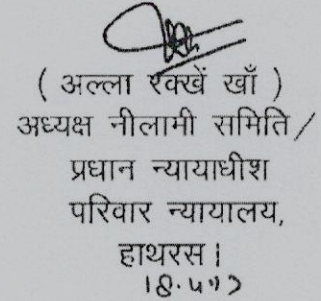 ( अल्ला रक्खें खाँ )
अध्यक्ष नीलामी समिति/
प्रधान न्यायाधीश
परिवार न्यायालय,
हाथरस।